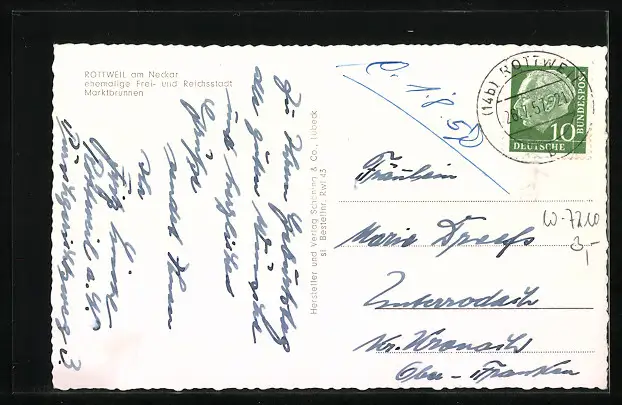 ROTTWEIL am Neckar
ehemalige Frei- und Reichsstadt
Marktbrunnen
Zu Ihrem Geburtstag
alle guten Wünsche
und herzliche
Grüße
sendet Ihnen
Rottweil a. N.
Hersteller und Verlag Schöning & Co., Lübeck
si Bestellnr. Rwl 45
(14b) ROTTWEIL
DEUTSCHE
BUNDESPOST
10
Fräulein
Marie Draefs
Unterrodach
Kr. Kronach
Ober-Franken
W-7210
3,-